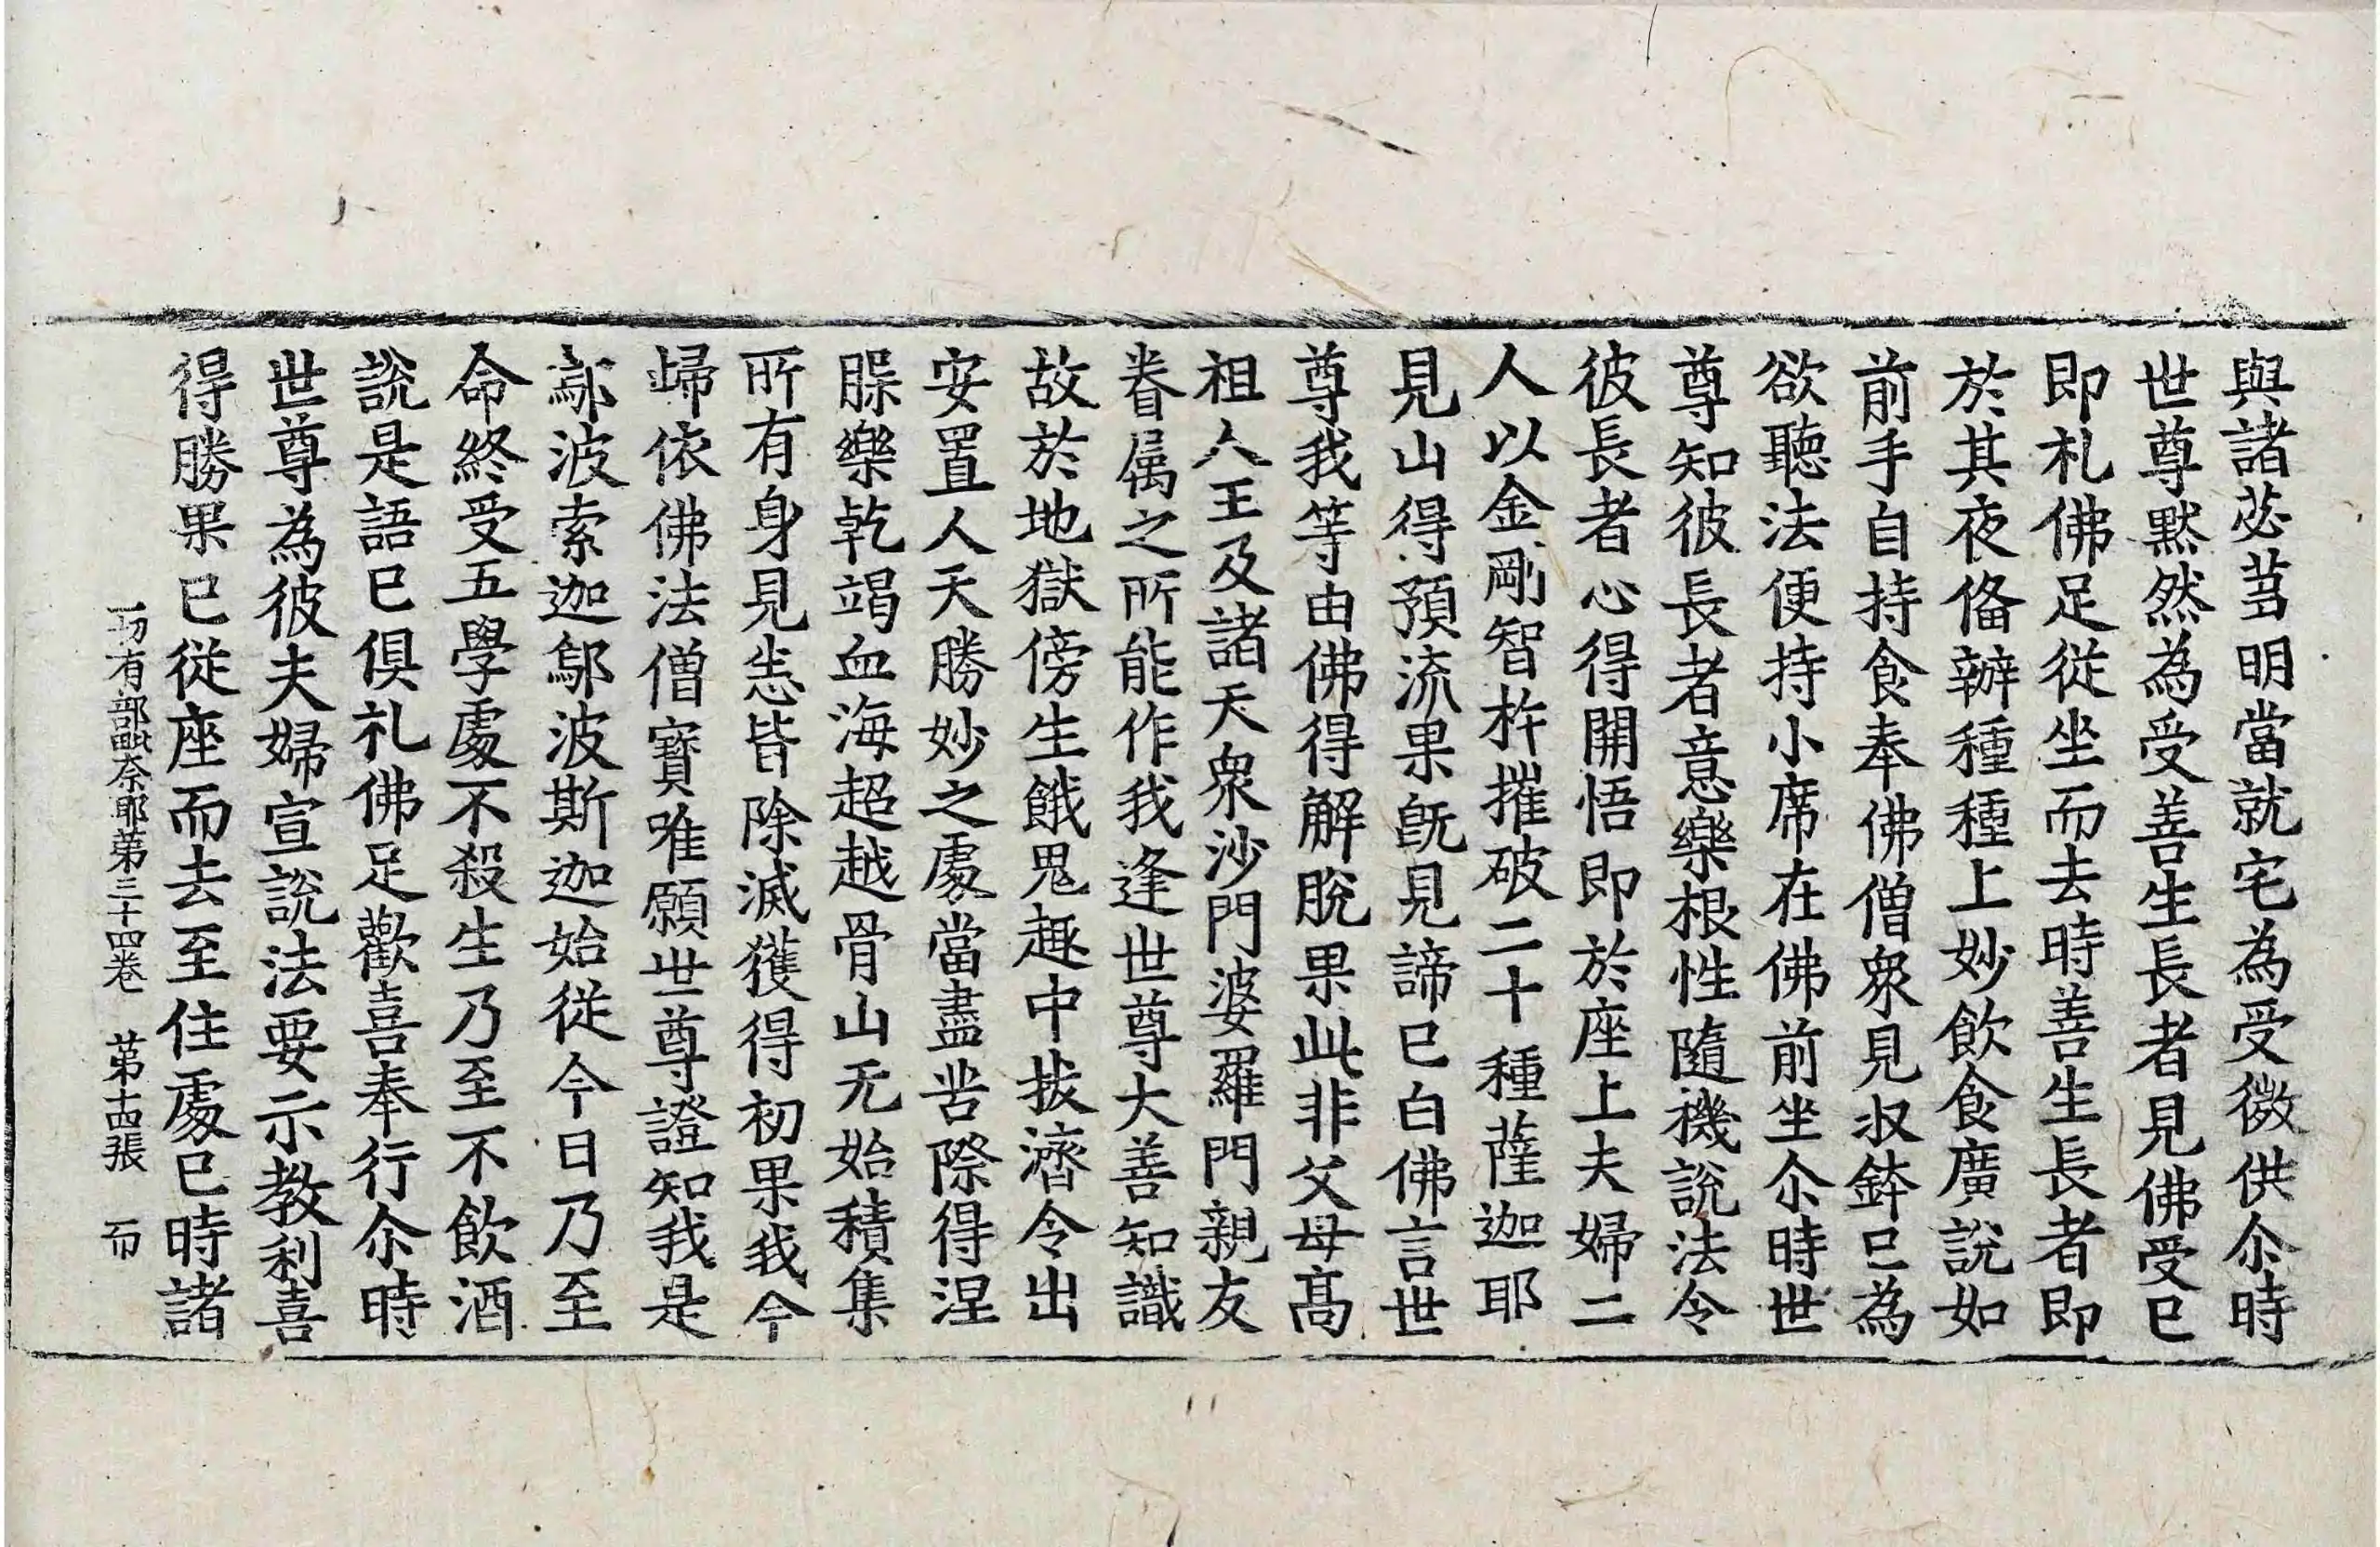 與諸苾芻明當就宅為受微供尒時
世尊默然為受善生長者見佛受已
即礼佛足從坐而去時善生長者即
於其夜俻辦種種上妙飲食廣說如
前手自持食奉佛僧衆見収鉢已為
欲聽法便持小席在佛前坐尒時世
尊知彼長者意樂根性隨機說法令
彼長者心得開悟即於座上夫婦二
人以金剛智杵摧破二十種薩迦耶
見山得預流果旣見諦已白佛言世
尊我等由佛得解脫果此非父母髙
祖人王及諸天衆沙門婆羅門親友
眷属之所能作我逢世尊大善知識
故於地獄傍生餓鬼趣中拔濟令出
安置人天勝妙之處當盡苦際得涅
槃樂乾竭血海超越骨山无始積集
所有身見悉皆除滅獲得初果我今
歸依佛法僧寶唯願世尊證知我是
鄔波索迦鄔波斯迦始從今日乃至
命終受五學處不殺生乃至不飲酒
說是語已俱礼佛足歡喜奉行尒時
世尊為彼夫婦宣說法要示教利喜
得勝果已從座而去至住處已時諸
一切有部毗奈耶第三十四卷 第十四張 而